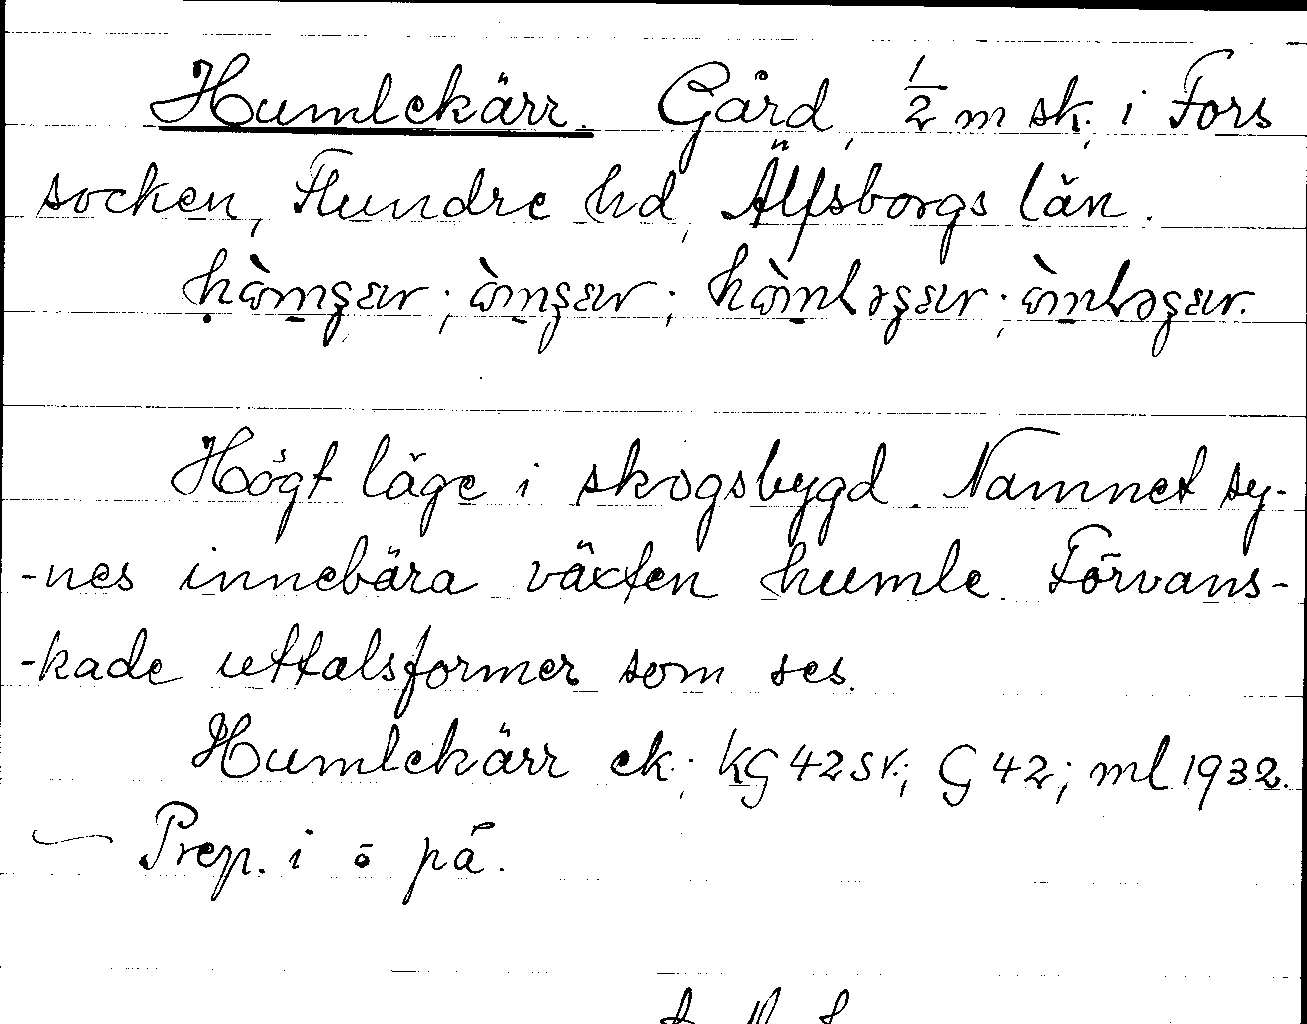 Humlekärr. Gård, 1/2 m sk; i Fors
socken, Flundre hd, Älfsborgs län.
Högt läge i skogsbygd. Namnet sy-
-nes innebära växten humle. Förvans-
-kade uttalsformer som ses.
Humlekärr ek; KG 42 SV.; G 42; ml 1932.
Prep. i o på.